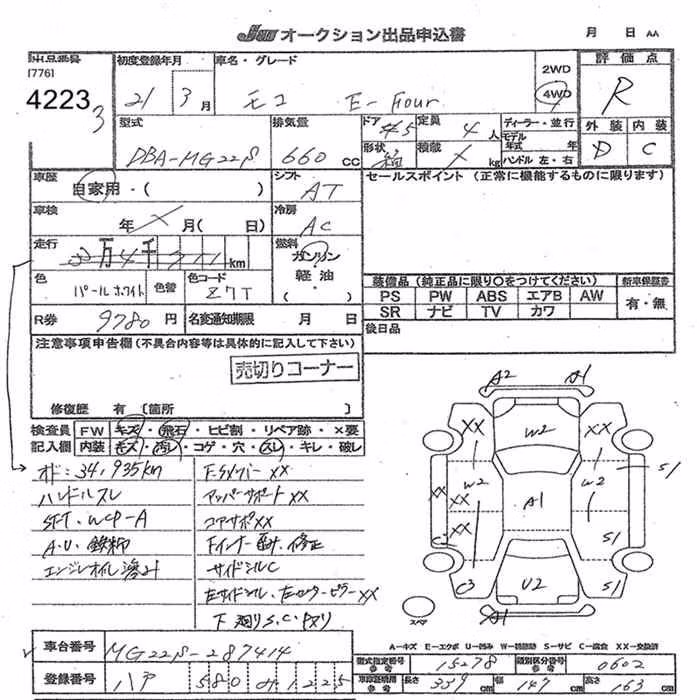 JW オークション出品申込書 月 日 AA
出品番号 初度登録年月 車名・グレード 評価点
17761
42233 21 3月 モコ E-Four 2WD 4WD R
型式 排気量 ドア 定員 ディーラー・並行 外装 内装
DBA-MG22S 660cc 5 4人 モデル年式 年 D C
形状 積載 X kg ハンドル 左・右
車歴 シフト セールスポイント (正常に機能するものに限ります)
自家用・( ) AT
車検 冷房
年 X 月( 日) AC
走行 燃料
3万4千911km ガソリン
色 色替 色コード 軽油 装備品 (純正品に限り○をつけてください) 新車保証書
パールホワイト Z7T ( ) PS PW ABS エアB AW 有・無
SR ナビ TV カワ
R券 9780円 名変通知期限 月 日 後日品
注意事項申告欄 (不具合内容等は具体的に記入して下さい)
売切りコーナー
修復歴 有 [箇所 ]
検査員 FW キズ・飛石・ヒビ割・リペア跡・×要
記入欄 内装 キズ・汚レ・コゲ・穴・スレ・キレ・破レ
オド:34,935km F-Sメンバー XX
ハンドルスレ アッパーサポート XX
SFT・WCP-A コアサポXX
A.U・錆 Fインナー 曲
エンジンオイル滲み サイドシルC
左サイドシル・左センターピラーXX
下廻りS.C・
A2 A1
XX W2 XX
W2 W2 S1
XX XX A1
XX
C S1
C3 U2 S1
スペア A1
A-キズ E-エクボ U-凹み W-補修跡 S-サビ C-腐食 XX-交換済
車台番号 MG22S-287414
型式指定番号 参考 15278 類別区分番号 参考 0602
登録番号 580 1225
車検証記載 参考 長さ 339cm 幅 147cm 高さ 163cm